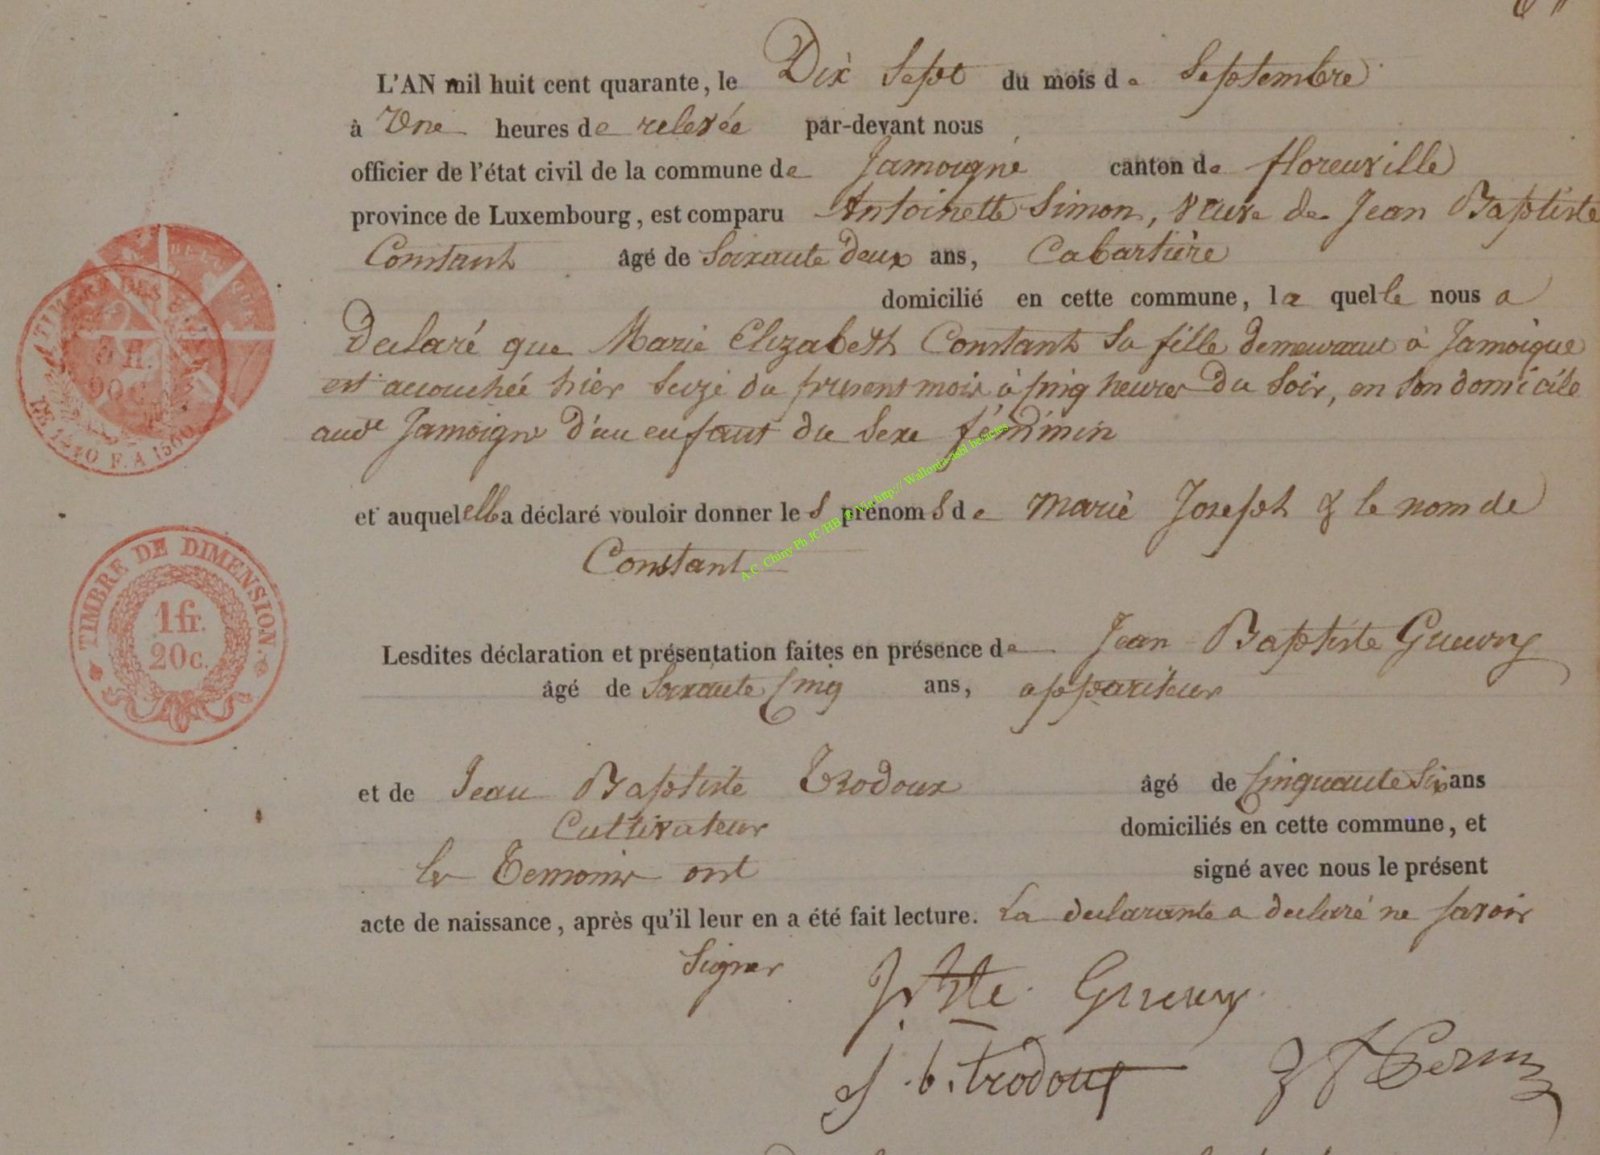 L'AN mil huit cent quarante, le Dix Sept du mois de Septembre
à Une heures de relevée par-devant nous
officier de l'état civil de la commune de Jamoigne canton de floreuville
province de Luxembourg, est comparu Antoinette Simon, veuve de Jean Baptiste
Constant âgé de Soixante deux ans, Cabartière
domicilié en cette commune, la quelle nous a
Déclaré que Marie Elizabeth Constant Sa fille demeurant à Jamoigne
est accouchée hier Seize du present mois à Cinq heures du Soir, en Son domicile
audt Jamoigne d'un enfant du Sexe féminin
et auquel elle a déclaré vouloir donner les prénoms de Marie Joseph & le nom de
Constant
Lesdites déclaration et présentation faites en présence de Jean Baptiste Gueury
âgé de Soixante Cinq ans, appariteur
et de Jean Baptiste Trodoux âgé de Cinquante Six ans
Cultivateur domiciliés en cette commune, et
les Temoins ont signé avec nous le présent
acte de naissance, après qu'il leur en a été fait lecture. La declarante a declaré ne savoir
Signer
J Bte Gueury
j. b. trodoux
TIMBRE DE DIMENSION.
1 fr.
20 c.